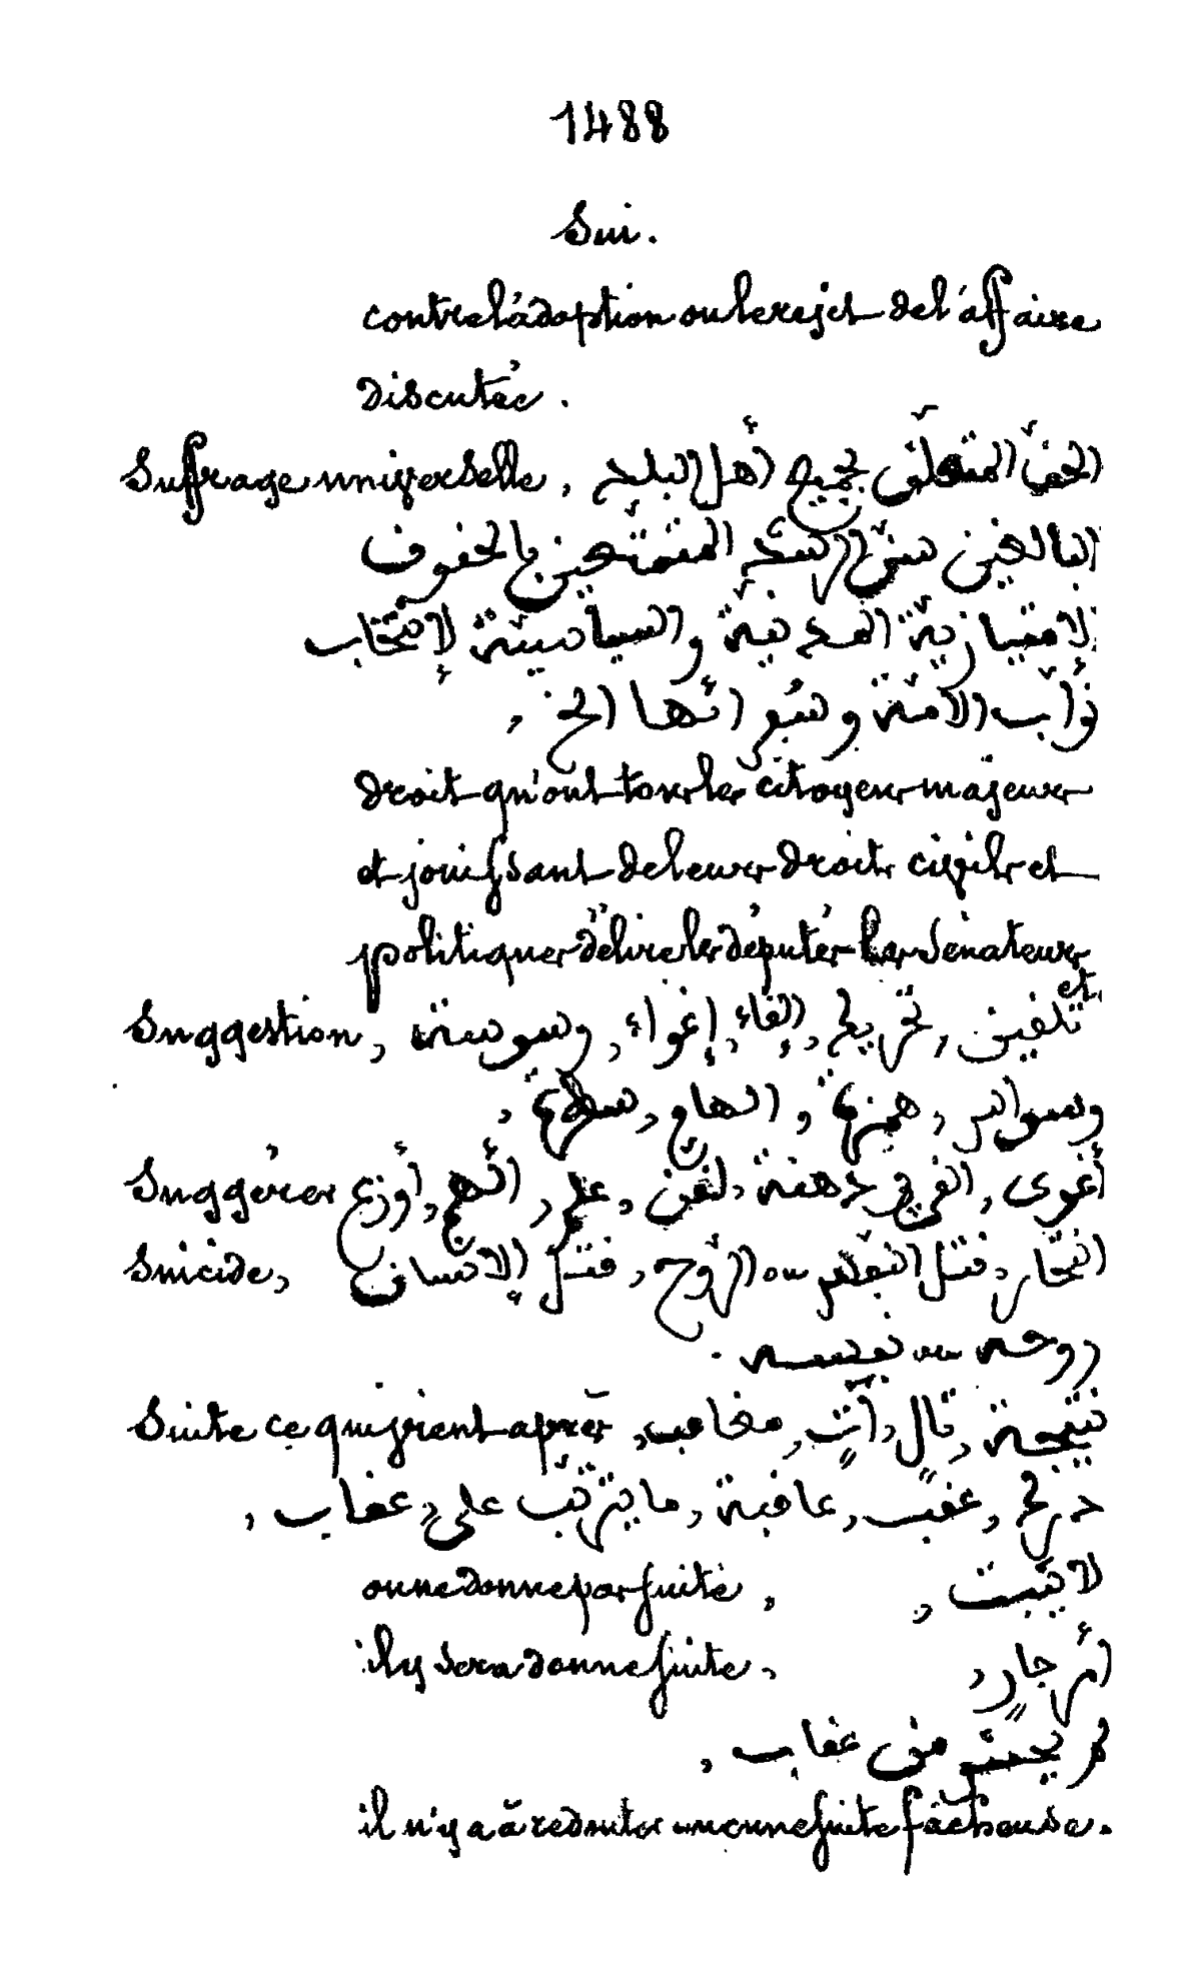 1488
Sui.
contre l'adoption ou le rejet de l'affaire
discutée.
Suffrage universelle, الحقّ المتعلّق بجميع أهل البلد
البالغين سنّ الرشد المتمتّعين بالحقوق
الامتيازيّة المدنيّة والسياسيّة لإنتخاب
نوّاب الأمّة وشيو ائها الخ,
droit qu'ont tous les citoyens majeurs
et jouissant de leurs droits civils et
politiques d'élire les députés les sénateurs
etc
Suggestion, تلقين, تخريج, إلقاء, إغواء, وسوسة
وسواس, همزة, الهام,
Suggérer أغوى, القى في ذهنه, لقّن, على, ألهم, أوزع
Suicide, انتحار, قتل النفس ou الرّوح, قتل الإنسان
روحه ou نفسه.
Suite ce qui vient après, نتيجة, تال, آتٍ, معاقب,
درج, عقب, عاقبة, ما يترتّب على, عقاب,
on ne donne pas suite, لا يثبت,
il y sera donne suite, أمر جارٍ,
لم يخش من عقاب,
il n'y a à redouter aucune suite fâcheuse.